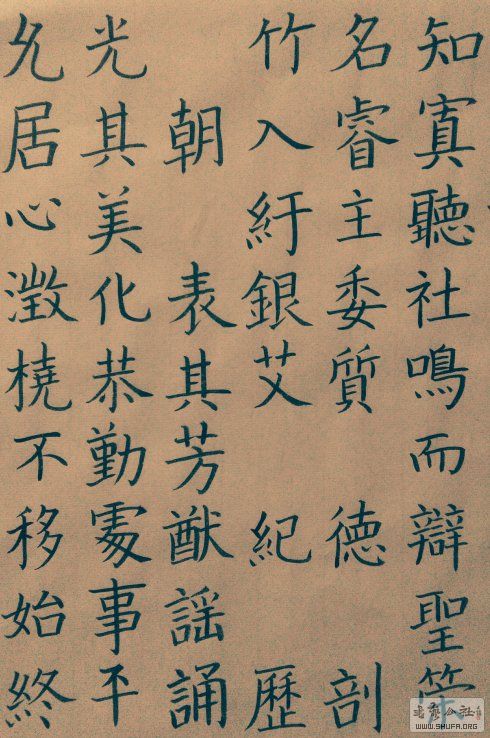 知寘聽社鳴而辯聖
名睿主委質 德 剖
竹入紆銀艾 紀 歷
朝 表其芳猷謡誦
光其美化恭勤處事平
允居心澂橈不移始終
WWW.SHUFA.ORG